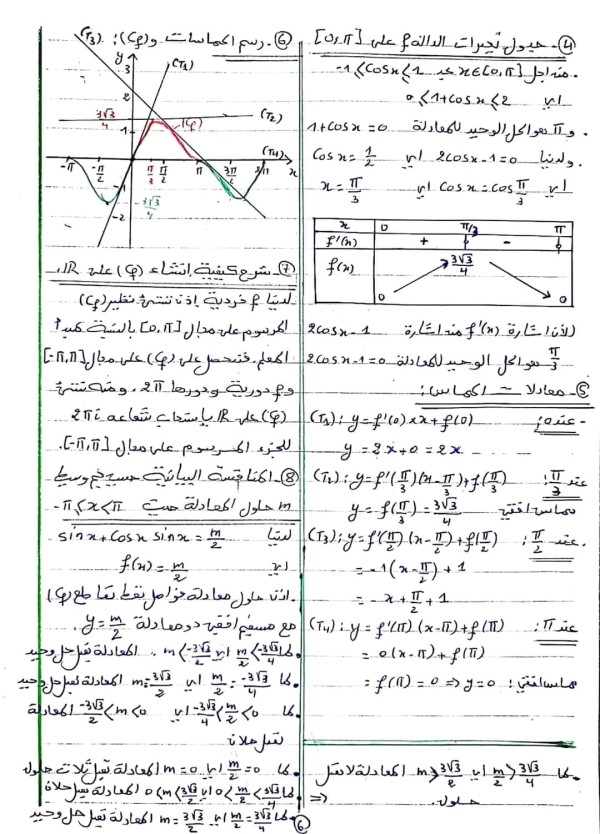 ④ - جدول تغيرات الدالة f على [0,π]
من اجل x∈[0,π] نجد -1≤cosx≤1
اي 0≤1+cosx≤2
و π هو الحل الوحيد للمعادلة 1+cosx=0
ولدينا 2cosx-1=0 اي cosx=1/2
اي cosx=cosπ/3 اي x=π/3
x 0 π/3 π
f'(x) + 0 - 0
f(x) 0 3√3/4 0
لأن اشارة f'(x) من اشارة 2cosx-1
π/3 هو الحل الوحيد للمعادلة 2cosx-1=0
⑤ - معادلات المماس:
- عند 0: (T1): y=f'(0)×x+f(0)
y=2x+0=2x
عند π/3: (T2): y=f'(π/3)(x-π/3)+f(π/3)
مماس افقي y=f(π/3)=3√3/4
عند π/2: (T3): y=f'(π/2)(x-π/2)+f(π/2)
=-1(x-π/2)+1
=-x+π/2+1
عند π: (T4): y=f'(π)(x-π)+f(π)
=0(x-π)+f(π)
مماس افقي: =f(π)=0 ⇒ y=0
⑥ - رسم المماسات و (Cf):
(T3) y (T1)
3
2
3√3/4 1 (Cf) (T2)
(T4)
-π -π/2 π/3 π/2 π 3π/2 2π x
-1
-3√3/4
-2
⑦ - شرح كيفية انشاء (Cf) على ℝ.
لدينا f فردية إذن ننشئ نظير (Cf)
المرسوم على مجال [0,π] بالنسبة لمبدأ
المعلم. فنتحصل على (Cf) على مجال [-π,π]
و f دورية ودورها 2π. ومنه ننشئ
(Cf) على ℝ بانسحاب شعاعه 2πi
للجزء المرسوم على مجال [-π,π].
⑧ - المناقشة البيانية حسب قيم وسيط
m حلول المعادلة حيث -π≤x≤π
لدينا sinx+cosx sinx=m/2
اي f(x)=m/2
اذن حلول معادلة فواصل نقط تقاطع (Cf)
مع مستقيم افقي ذو معادلة y=m/2.
لما m/2<-3√3/4 اي m<-3√3/2 المعادلة
لما m/2=-3√3/4 اي m=-3√3/2 المعادلة تقبل حل وحيد
لما -3√3/4<m/2<0 اي -3√3/2<m<0 المعادلة
تقبل حلان
لما m/2=0 اي m=0 المعادلة تقبل ثلاث حلول
لما 0<m/2<3√3/4 اي 0<m<3√3/2 المعادلة تقبل حلان
لما m/2=3√3/4 اي m=3√3/2 المعادلة تقبل حل وحيد
لما m/2>3√3/4 اي m>3√3/2 المعادلة لا تقبل
حلول. ⇐
6